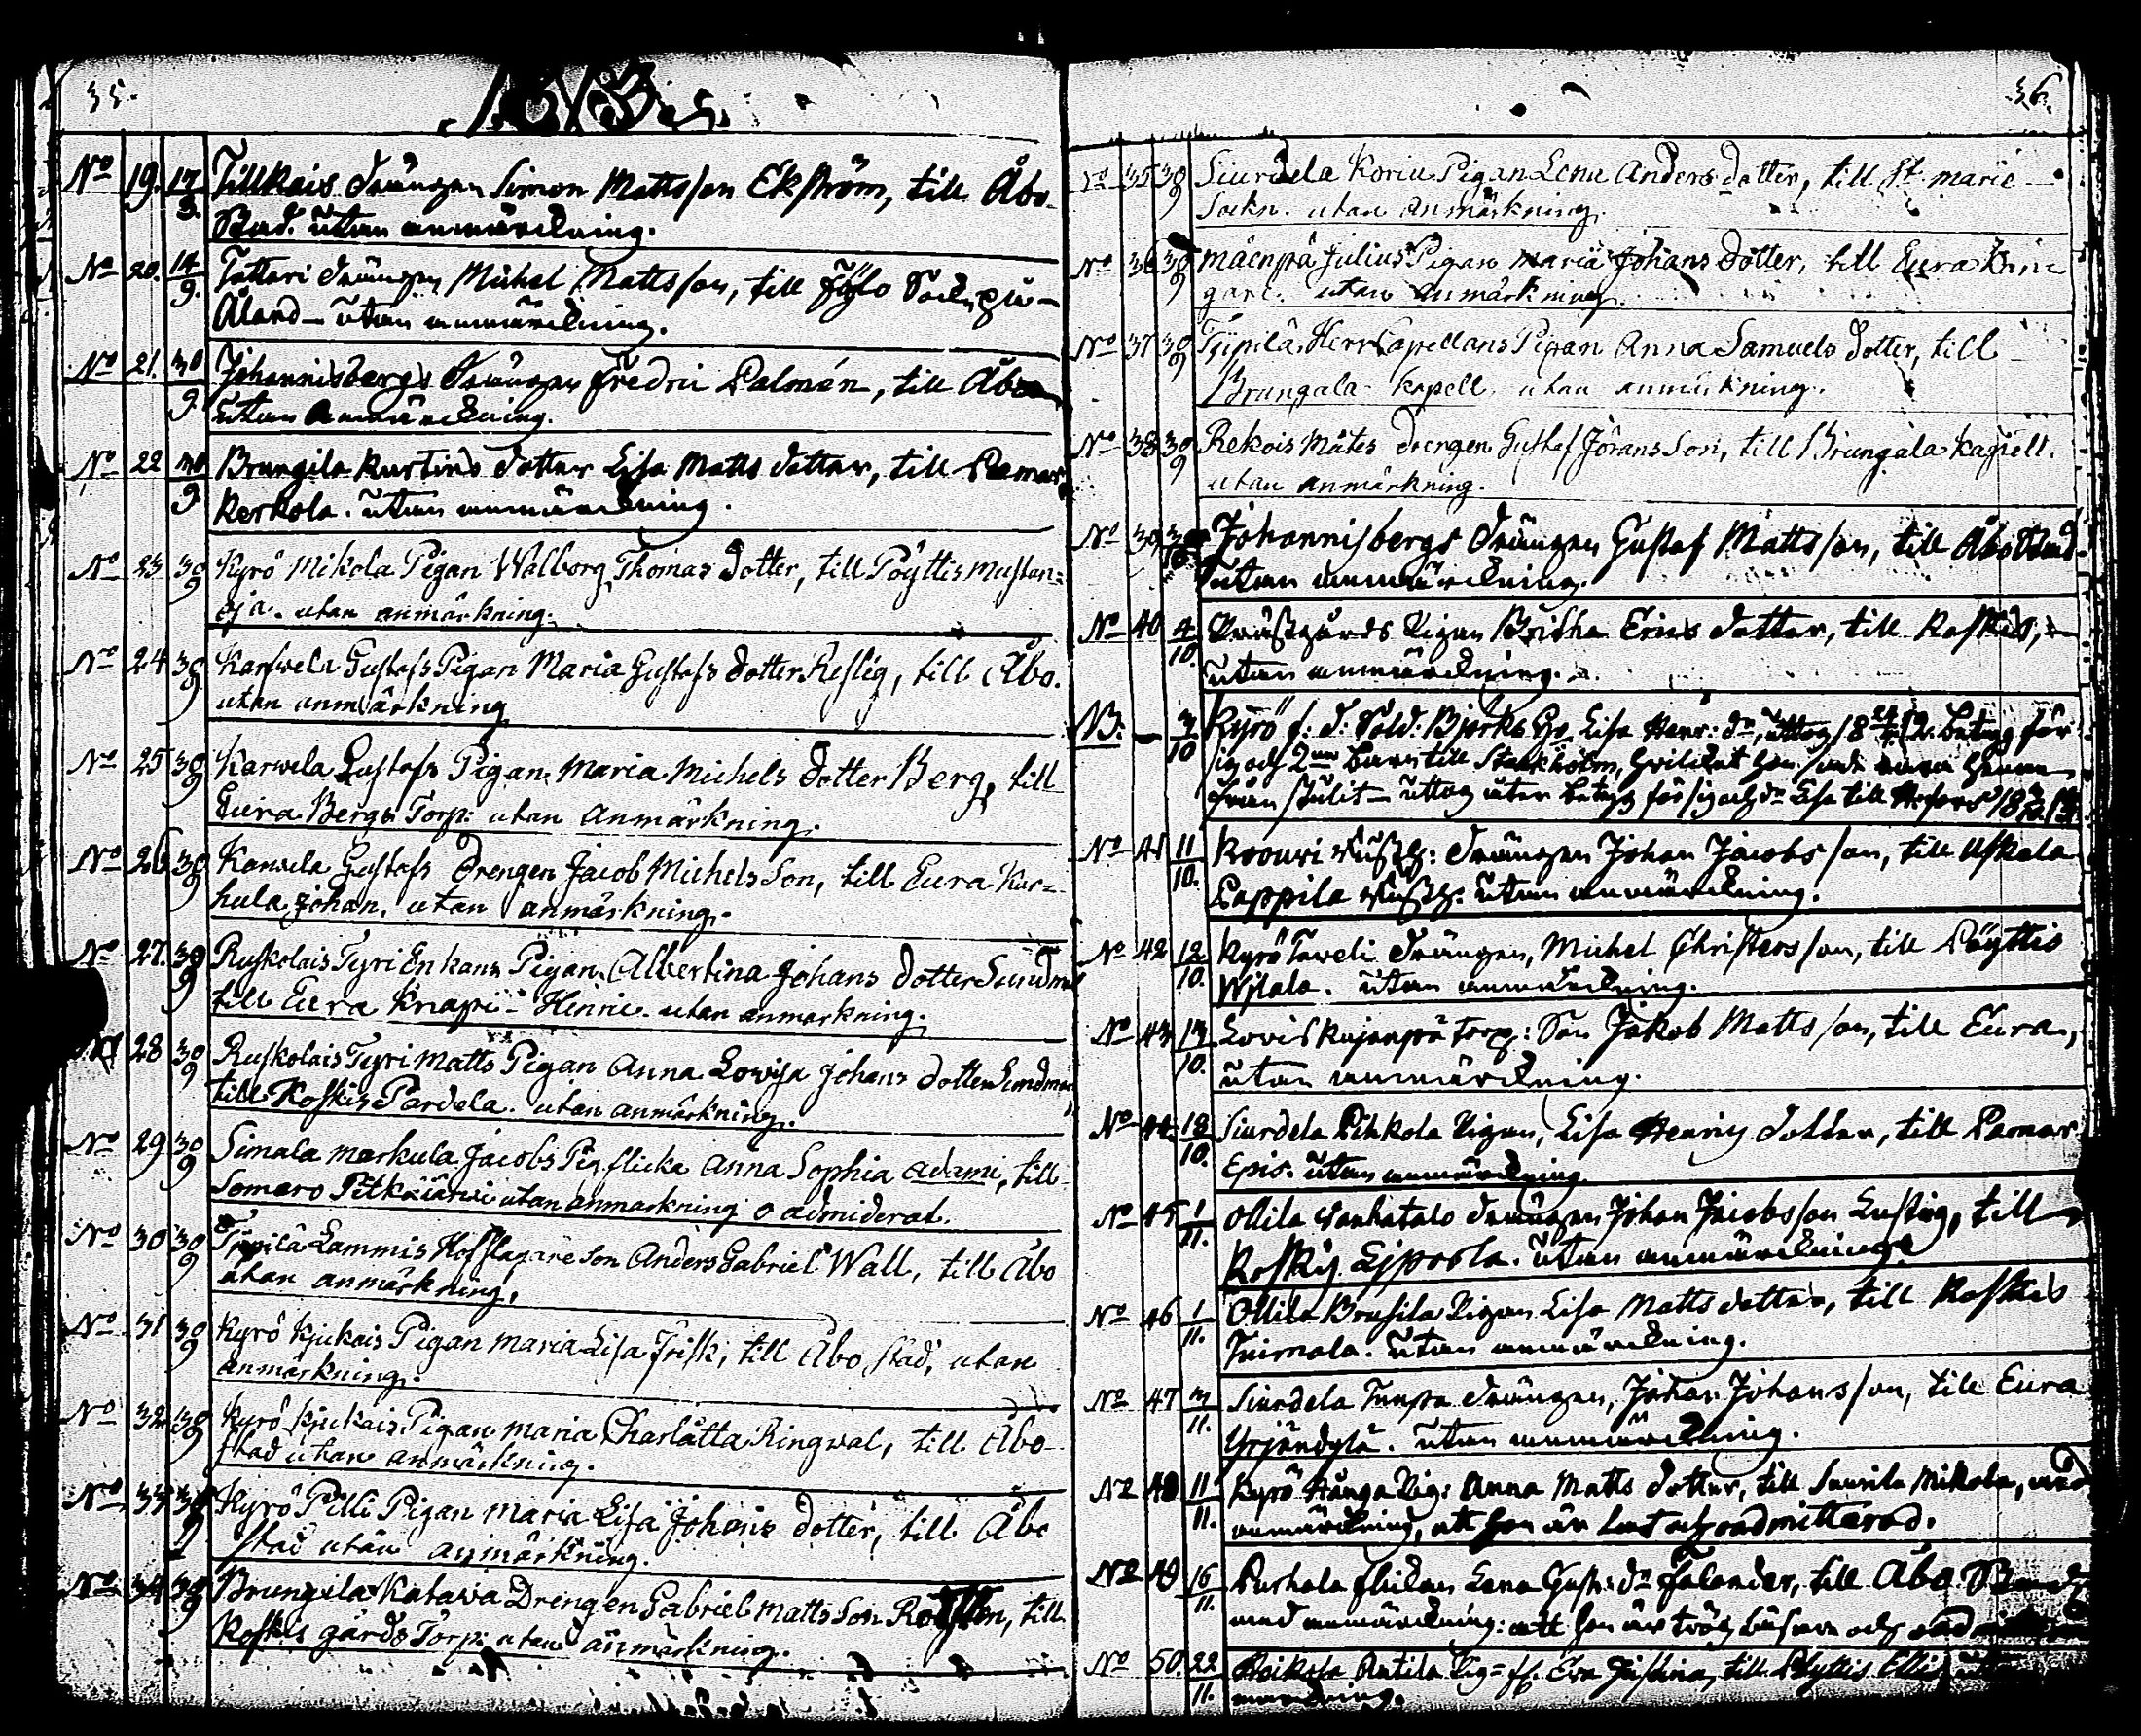 35.
No 19. 17/9. Tillkais Drängen Simon Mattsson Ekström, till Åbo
Stad. utan anmärckning.
No 20. 14/9. Tattari Drängen Michel Mattsson, till Föglö Sockn på
Åland utan anmärckning.
No 21. 30/9. Johannisbergs Drängen Fredric Palmén, till Åbo
utan Anmärckning.
No 22 30/9 Brungila Kurtins dotter Lisa Matts dotter, till Pemar
Kerkola. utan anmärckning.
No 23 30/9 Kyrö Mikola Pigan Walborg Thomas Dotter, till Pöyttis Mustan=
oja. utan anmärkning.
No 24 30/9 Karwela Gustafs Pigan Maria Gustafs dotter Reslig, till Åbo.
utan anmärkning
No 25 30/9 Karwela Gustafs Pigan Maria Michels dotter Berg, till
Eura Bergs Torp: utan anmärkning.
No 26 30/9 Karwela Gustafs Drengen Jacob Michels Son, till Eura Kar=
hula Johan. utan anmärkning.
No 27. 30/9 Ruskolais Tyri Enkans Pigan Albertina Johans dotter
till Eura Knapi Henric utan anmarkning.
28 30/9 Ruskolais Tyri Matts Pigan Anna Lowisa Johans dotter
till Koskis Pardela. utan anmärkning.
No 29 30/9 Simala Markula Jacobs Pig flicka Anna Sophia Adami, till
Somero Pitkäjärwi utan anmarkning o admiderat.
No 30 30/9 Typilä Lammis Hofslagare Son Anders Gabriel Wall, till Åbo
utan anmärkning.
No 31 30/9 Kyrö Kjukais Pigan Maria Lisa Frisk, till Åbo stad, utan
anmärkning.
No 32 30/9 Kyrö Kjukais Pigan Maria Charlåtta Ringwal, till Åbo
stad utan anmärkning.
No 33 30/9 Kyrö Pilli Pigan Maria Lisa Johans dotter, till Åbo
stad utan anmärkning.
No 34 30/9 Brungila Katawa Drengen Gabriel Matts Son till
Koskis gårds Torp: utan anmärkning.
36.
No 35 30/9 Siurdela Koriu Pigan Lena Anders dotter, till St. Marie
Sockn. utan anmärkning.
No 36 30/9 Mäenpä Julius Pigan Maria Johans dotter, till Eura
utan anmärkning.
No 37 30/9 Typilä Herr Capellans Pigan Anna Samuels dotter, till
Brungala Kapell utan anmärkning.
No 38 30/9 Rekois Mates drengen Gustaf Jörans Son, till Brungala kapell.
utan anmärkning.
No 39 Johannisbergs Drängen Gustaf Mattsson, till Åbo Stad
utan anmärckning.
No 40 4/10. Prästgårds Pigan Britha Erics dotter, till Koskis,
utan anmärckning.
NB. — 7/10 Kyrö f: d: Sold: Björks Lisa Henr: dr, uttog betyg för
sig och 2ne barn till Stockholm, hvilket hon
från uttog åter betyg för sig och dr Lisa till
No 41 11/10. Koouri Rusth: Drängen Johan Jacobsson, till Uskela
Pappila Rusth: utan anmärckning.
No 42 12/10. Kyrö Taweli Drängen, Michel Christersson, till Pöyttis
utan anmärckning.
No 43 13/10. Torp: Son Jakob Mattsson, till Eura,
utan anmärckning.
No 44. 18/10. Siurdela Pihkola Pigan, Lisa Henrics dotter, till Pemar
Epis. utan anmärckning.
No 45 1/11. Ollila Wanhatalo Drängen Johan Jacobsson Lustig, till
Koskis utan anmärckning.
No 46 1/11. Ollila Brusila Pigan Lisa Matts dotter, till Koskis
Tuimala. utan anmärckning.
No 47 3/11. Siurdela Drängen, Johan Johansson, till Eura
Yrjändylä. utan anmärckning.
No 48 11/11. Kyrö Hånga Pig: Anna Matts dotter, till Sauvila Mikola, med
anmärckning, att hon är admitterad.
No 49 16/11. Purhala flickan Lena Gust: dr Falander, till Åbo Stad
med anmärckning: att hon är trög läsare och
No 50. 22/11. Antila Pig= Eva till Pöyttis